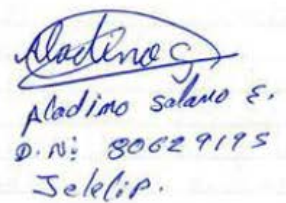 Aladino S
Aladino Solano E.
D.N: 80629195
Jelelip.